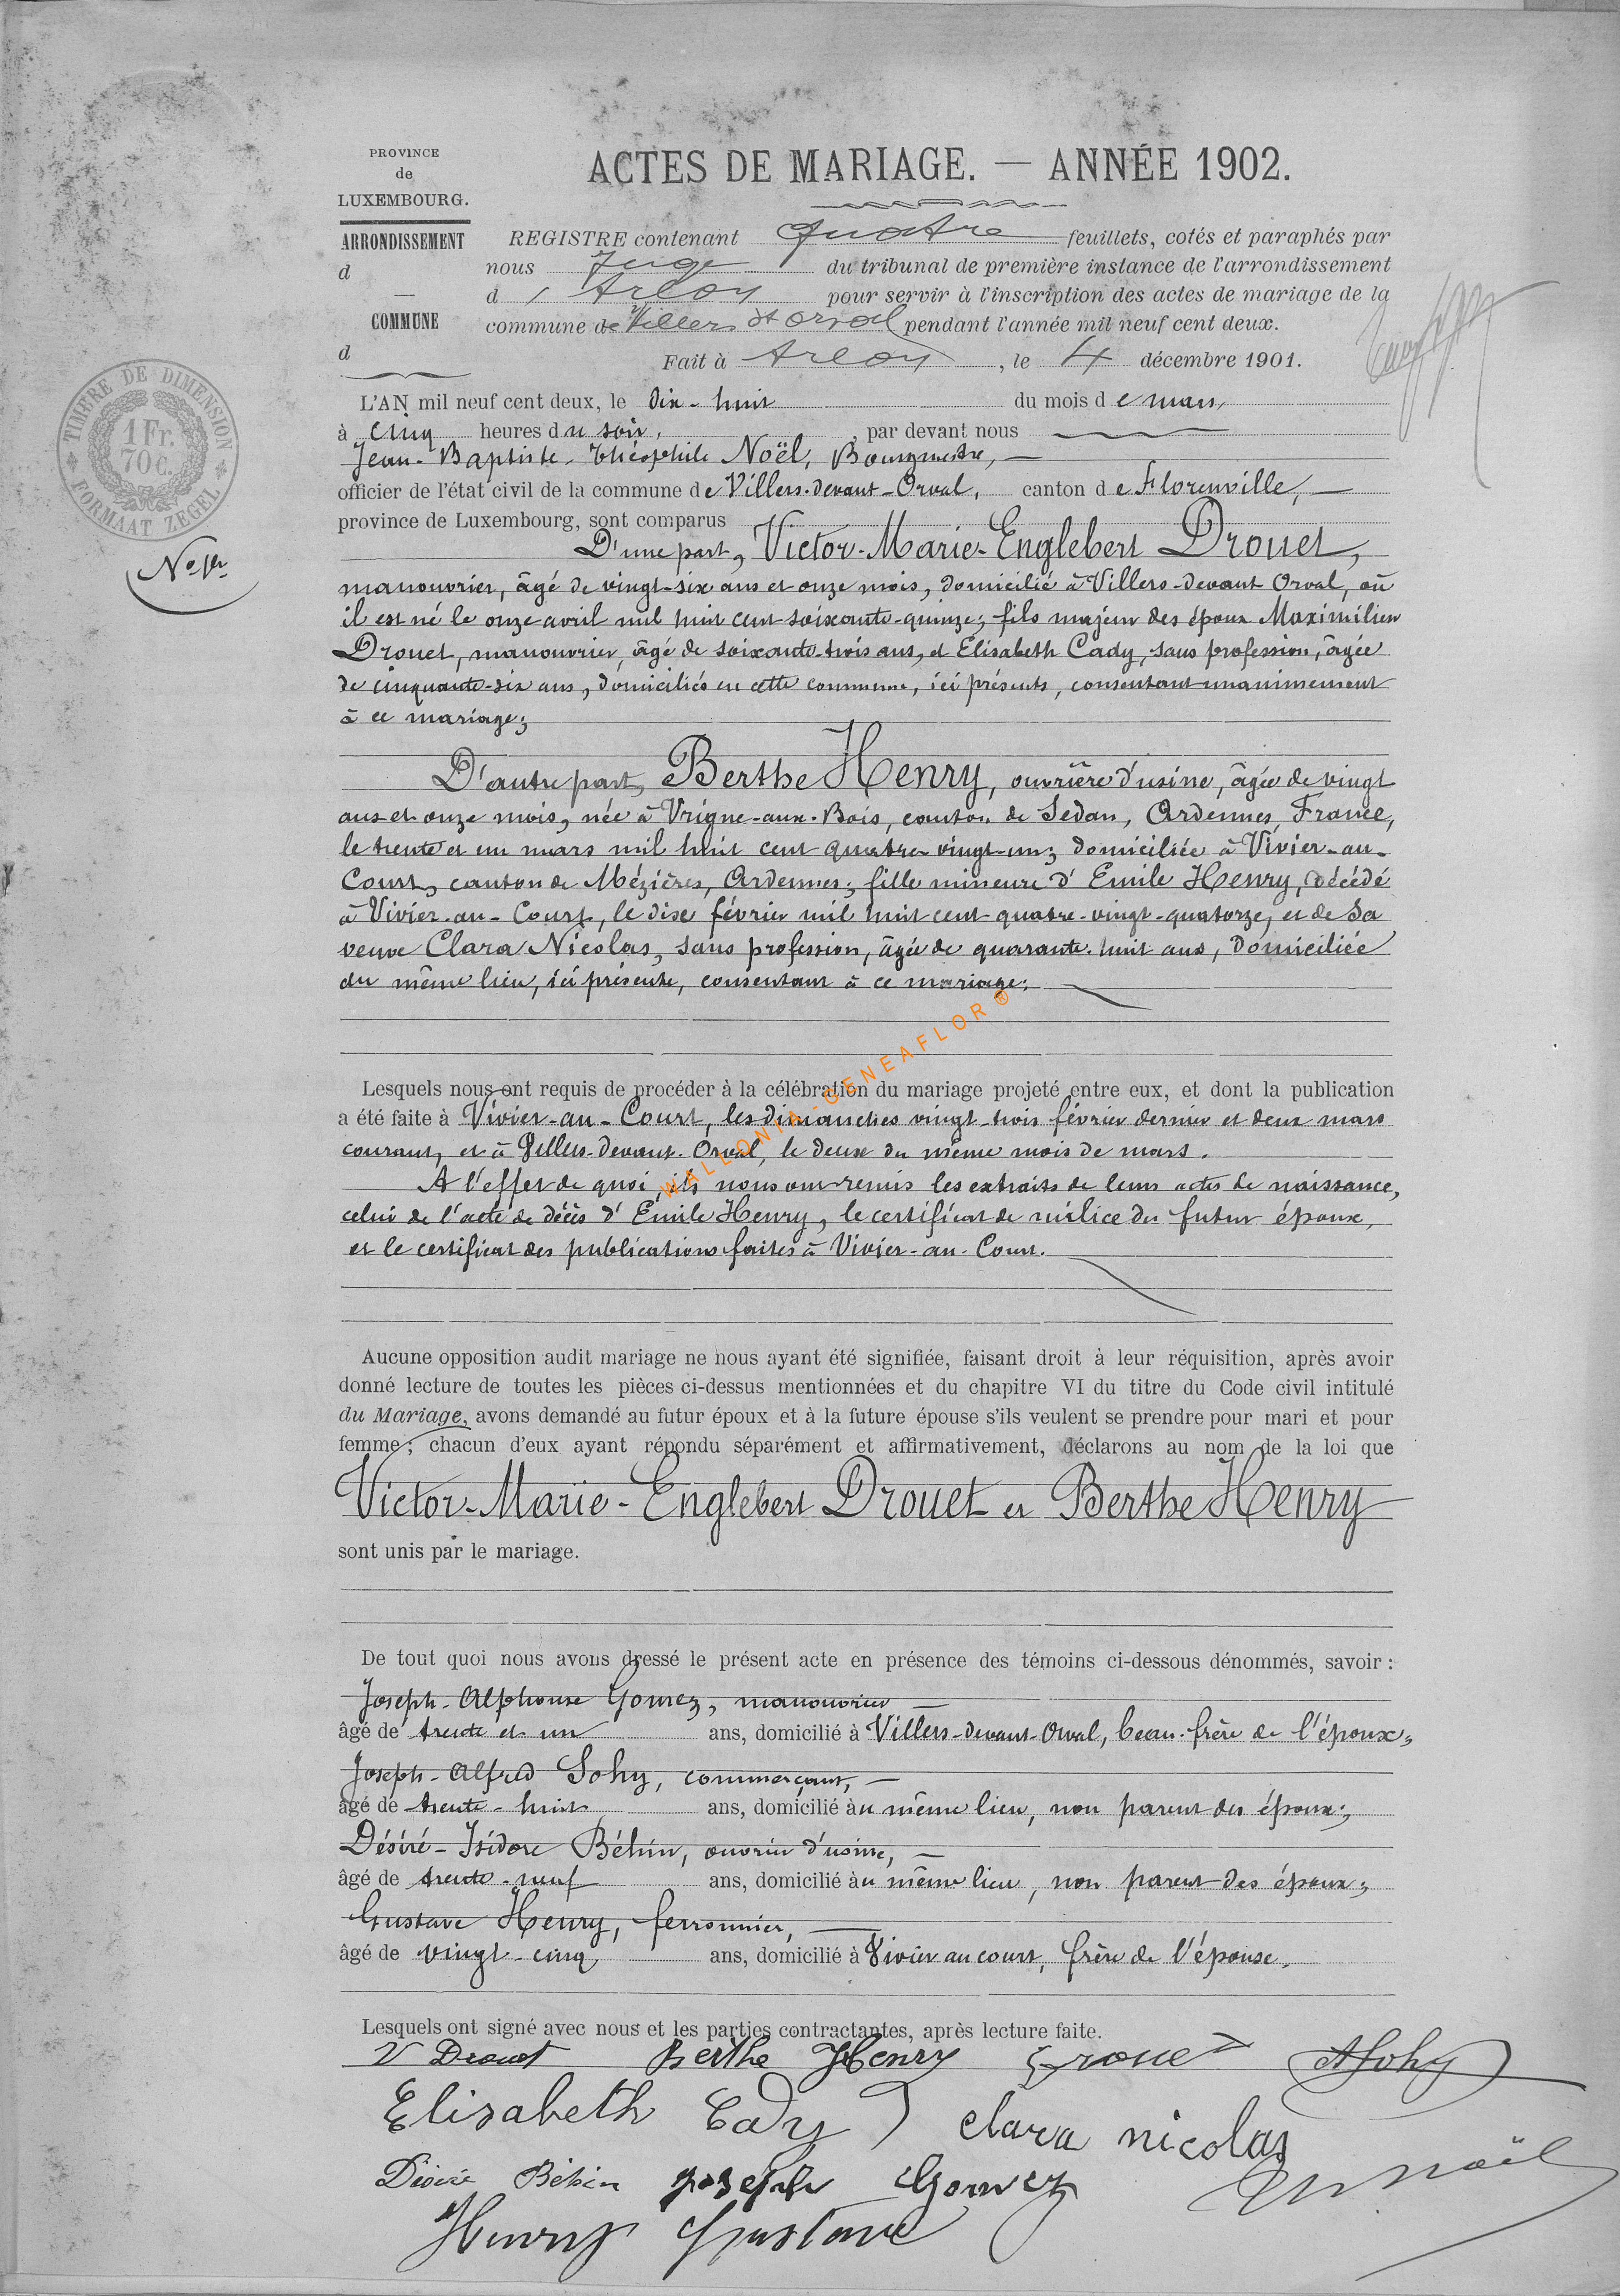 PROVINCE
de
LUXEMBOURG.
ARRONDISSEMENT
d
COMMUNE
d
ACTES DE MARIAGE. — ANNÉE 1902.
REGISTRE contenant quatre feuillets, cotés et paraphés par
nous Juge du tribunal de première instance de l'arrondissement
d'Arlon pour servir à l'inscription des actes de mariage de la
commune de Villers dt Orval pendant l'année mil neuf cent deux.
Fait à Arlon, le 4 décembre 1901.
TIMBRE DE DIMENSION
1 Fr.
70 c.
FORMAAT ZEGEL
No 1er
L'AN mil neuf cent deux, le dix-huit du mois de mars,
à cinq heures du soir, par devant nous
Jean-Baptiste-Théophile Noël, Bourgmestre,
officier de l'état civil de la commune de Villers-devant-Orval, canton de Florenville,
province de Luxembourg, sont comparus
D'une part, Victor-Marie-Englebert Drouet,
manouvrier, âgé de vingt-six ans et onze mois, domicilié à Villers-devant Orval, où
il est né le onze avril mil huit cent soixante-quinze; fils majeur des époux Maximilien
Drouet, manouvrier, âgé de soixante-trois ans, et Élisabeth Cady, sans profession, âgée
de cinquante-six ans, domiciliés en cette commune, ici présents, consentant unanimement
à ce mariage;
D'autre part, Berthe Henry, ouvrière d'usine, âgée de vingt
ans et onze mois, née à Vrigne-aux-Bois, canton de Sedan, Ardennes, France,
le trente et un mars mil huit cent quatre-vingt-un; domiciliée à Vivier-au-
Court, canton de Mézières, Ardennes; fille mineure d'Emile Henry, décédé
à Vivier-au-Court, le dix février mil huit cent quatre-vingt-quatorze, et de sa
veuve Clara Nicolas, sans profession, âgée de quarante-huit ans, domiciliée
du même lieu, ici présente, consentant à ce mariage;
WALLONIA-GENEAFLOR ®
Lesquels nous ont requis de procéder à la célébration du mariage projeté entre eux, et dont la publication
a été faite à Vivier-au-Court, les dimanches vingt-trois février dernier et deux mars
courant, et à Villers-devant-Orval, le deux du même mois de mars.
A l'effet de quoi, ils nous ont remis les extraits de leurs actes de naissance,
celui de l'acte de décès d'Emile Henry, le certificat de milice du futur époux,
et le certificat des publications faites à Vivier-au-Court.
Aucune opposition audit mariage ne nous ayant été signifiée, faisant droit à leur réquisition, après avoir
donné lecture de toutes les pièces ci-dessus mentionnées et du chapitre VI du titre du Code civil intitulé
du Mariage, avons demandé au futur époux et à la future épouse s'ils veulent se prendre pour mari et pour
femme; chacun d'eux ayant répondu séparément et affirmativement, déclarons au nom de la loi que
Victor-Marie-Englebert Drouet et Berthe Henry
sont unis par le mariage.
De tout quoi nous avons dressé le présent acte en présence des témoins ci-dessous dénommés, savoir :
Joseph-Alphonse Gomez, manouvrier
âgé de trente et un ans, domicilié à Villers-devant-Orval, beau-frère de l'époux;
Joseph-Alfred Sohy, commerçant,
âgé de trente-huit ans, domicilié au même lieu, non parent des époux;
Désiré-Isidore Béhin, ouvrier d'usine,
âgé de trente-neuf ans, domicilié au même lieu, non parent des époux;
Gustave Henry, ferronnier,
âgé de vingt-cinq ans, domicilié à Vivier au court, frère de l'épouse.
Lesquels ont signé avec nous et les parties contractantes, après lecture faite.
V Drouet Berthe Henry Drouet ASohy
Elisabeth Cady Clara nicolas
Désiré Béhin Joseph Gomez Noël
Henry Gustave